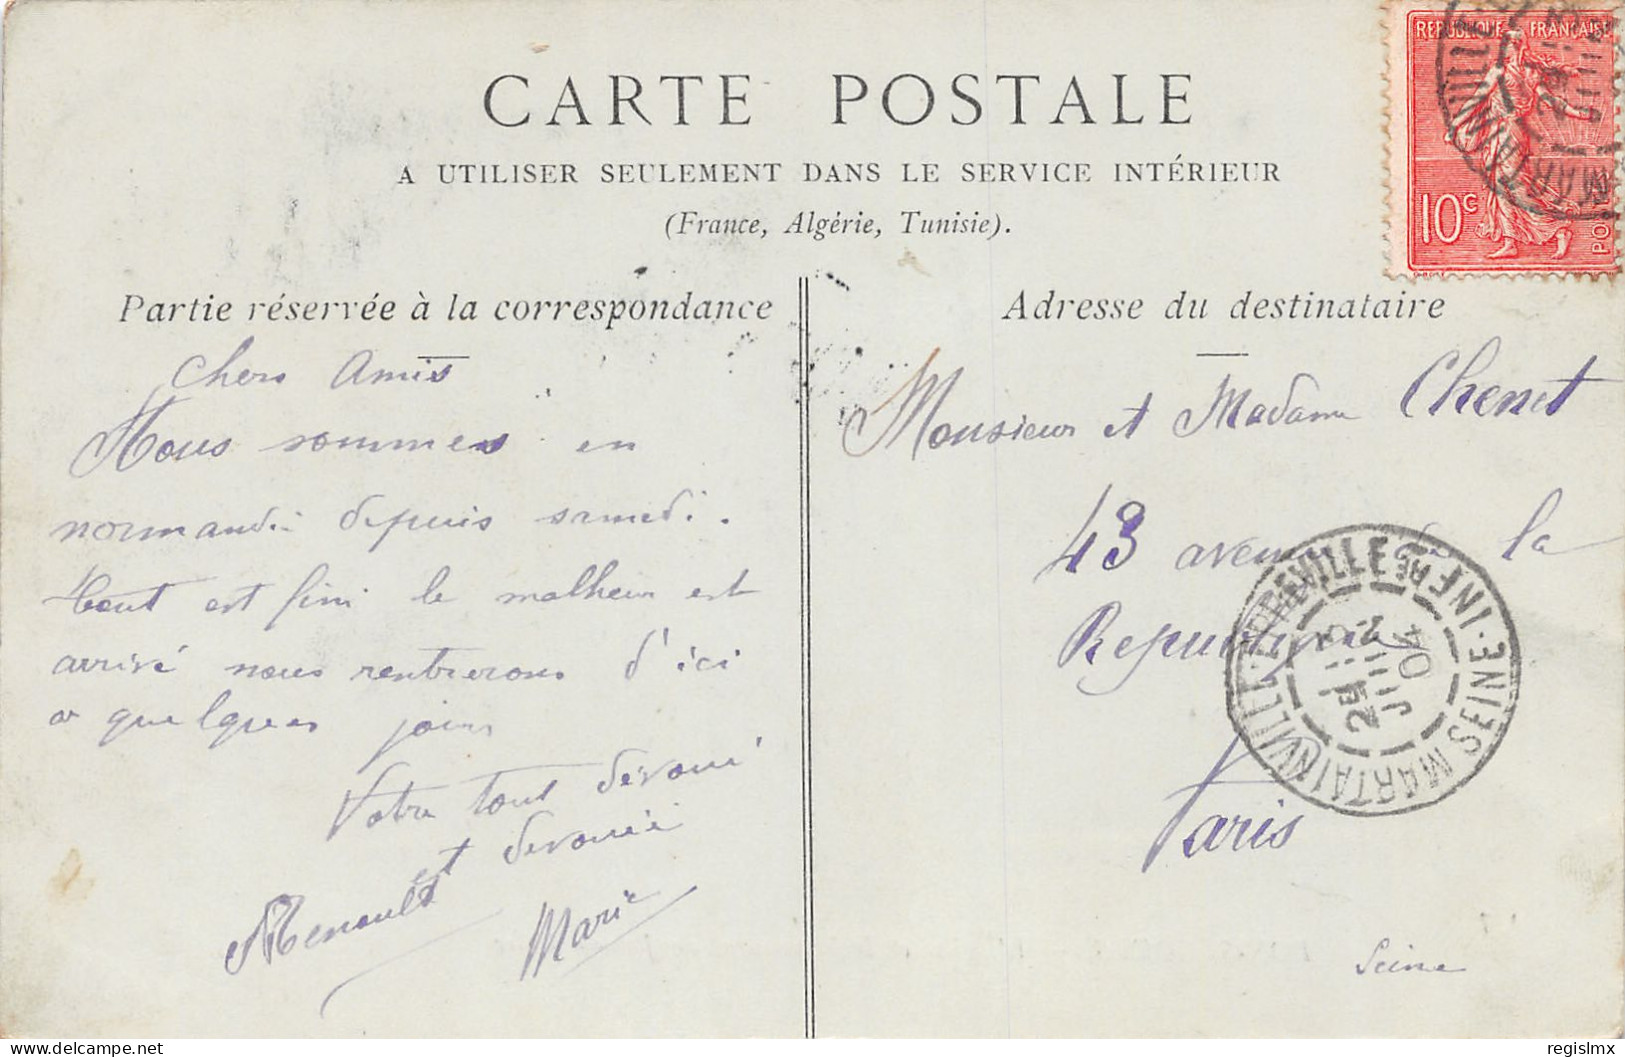 CARTE POSTALE
A UTILISER SEULEMENT DANS LE SERVICE INTÉRIEUR
(France, Algérie, Tunisie).
REPUBLIQUE FRANÇAISE
10c
Partie réservée à la correspondance
Chers Amis
Nous sommes en
normandie depuis samedi.
tout est fini le malheur est
arrivé nous rentrerons d'ici
a quelques jours
Votre tout dévoué
et dévouée
Renault
Marie
Adresse du destinataire
Monsieur et Madame Chenet
43 avenue de la
Republique
Paris
Seine
MARTAINVILLE-EPREVILLE
SEINE-INFRE